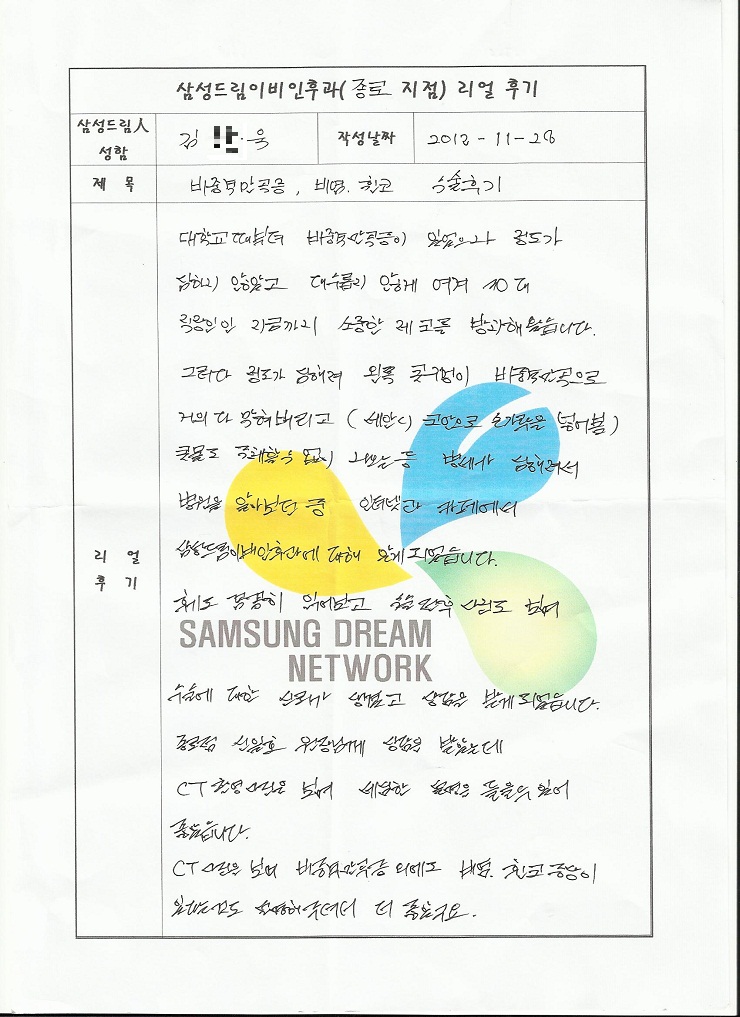 삼성드림이비인후과(종로 지점) 리얼 후기
삼성드림人 성함
김 욱
작성날짜
2012-11-28
제 목
비중격만곡증, 비염. 코골이 수술후기
리 얼 후 기
대학교때부터 비중격만곡증이 있었으나 정도가
심하지 않았고 대수롭지 않게 여겨 40대
직장인인 지금까지 소중한 제 코를 방과해왔습니다.
그러다 정도가 심해져 왼쪽 콧구멍이 비중격만곡으로
거의 다 막혀버리고 (세안시 코안으로 손가락을 넣어봄)
콧물도 주체할수 없이 그 등 병세가 심해져서
병원을 알아보던 중 인터넷과 카페에서
삼성드림이비인후과에 대해 알게되었습니다.
후기도 꼼꼼히 읽어보고 수술 전후 사진도 보며
SAMSUNG DREAM
NETWORK
수술에 대한 신뢰가 생겼고 상담을 받게되었습니다.
종로점 신일호 원장님께 상담을 받았는데
CT촬영사진을 보며 세심한 설명을 들을수 있어
좋았습니다.
CT 사진을 보며 비중격만곡증 외에도 비염. 코골이 증상이
있다는것도 설명해주셔서 더 좋았구요.